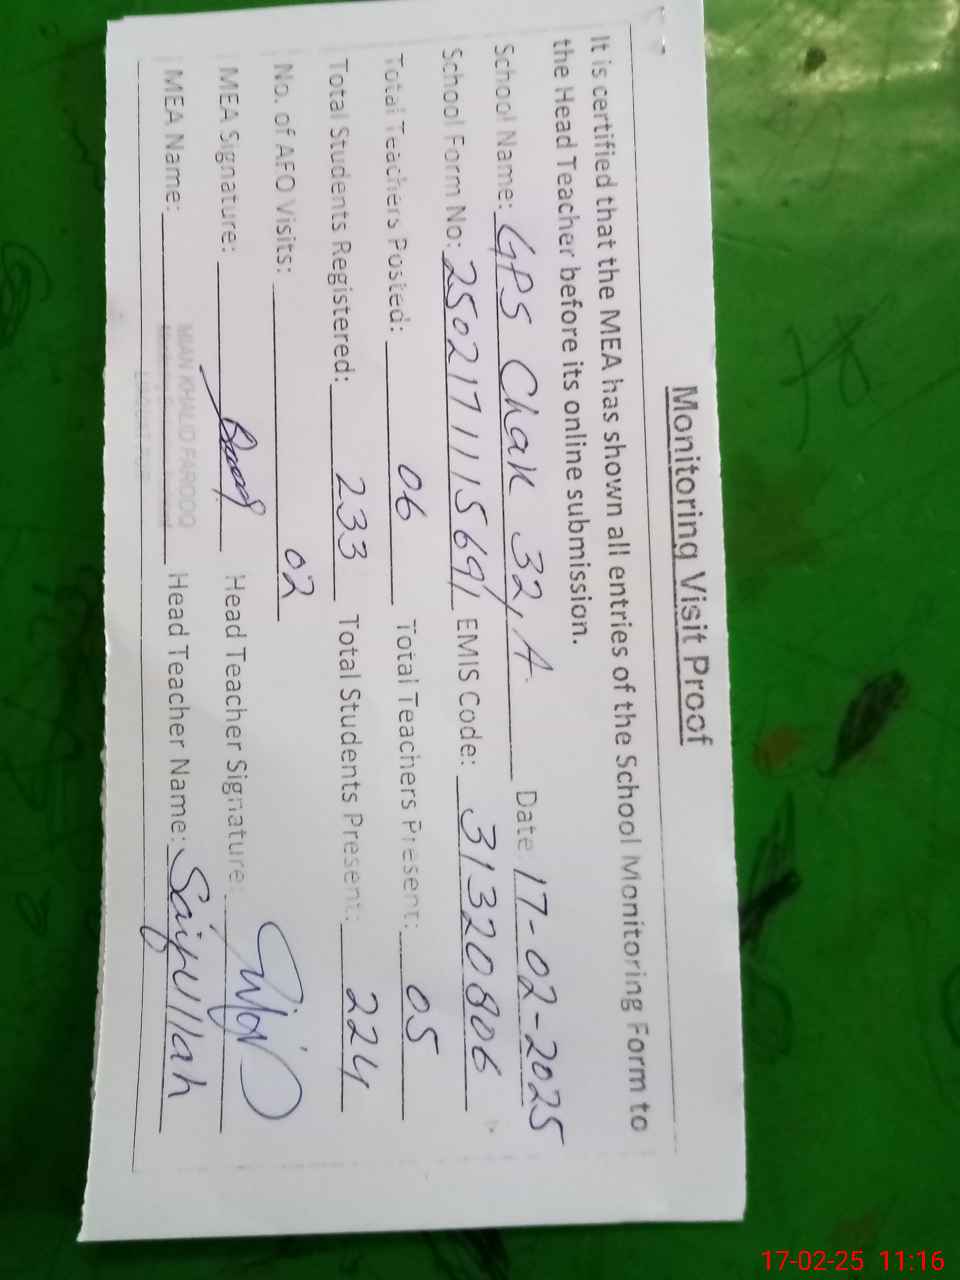 Monitoring Visit Proof
It is certified that the MEA has shown all entries of the School Monitoring Form to
the Head Teacher before its online submission.
School Name: GPS Chak 32/A Date: 17-02-2025
School Form No: 25021711115691 EMIS Code: 31320806
Total Teachers Posted: 06 Total Teachers Present: 05
Total Students Registered: 233 Total Students Present: 224
No. of AEO Visits: 02
MEA Signature: Head Teacher Signature:
MEA Name: MIAN KHALID FAROOQ Head Teacher Name: Saifullah
17-02-25 11:16